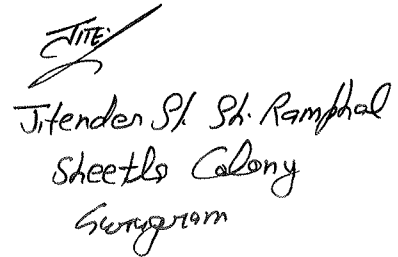 JITE:
Jitender S/. Sh. Ramphal
Sheetla Colony
Gurugram